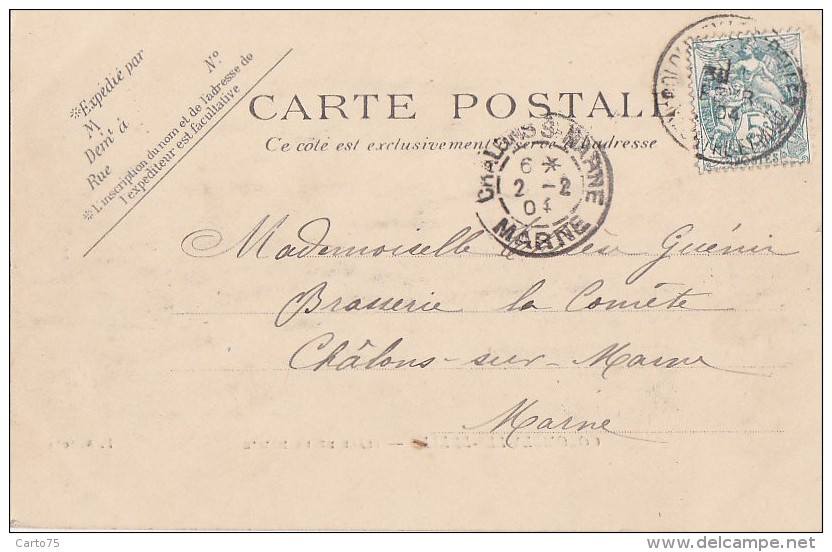 *Expédié par N°
M
Demt à
Rue
*L'inscription du nom et de l'adresse de
l'expéditeur est facultative
CARTE POSTALE
Ce côté est exclusivement à l'adresse
CHALONS-S-MARNE
6 *
2 -2
04
MARNE
FEVR
04
5
POSTES
Mademoiselle Guénin
Brasserie la Comète
Châlons-sur-Marne
Marne
Carto75
www.delcampe.net